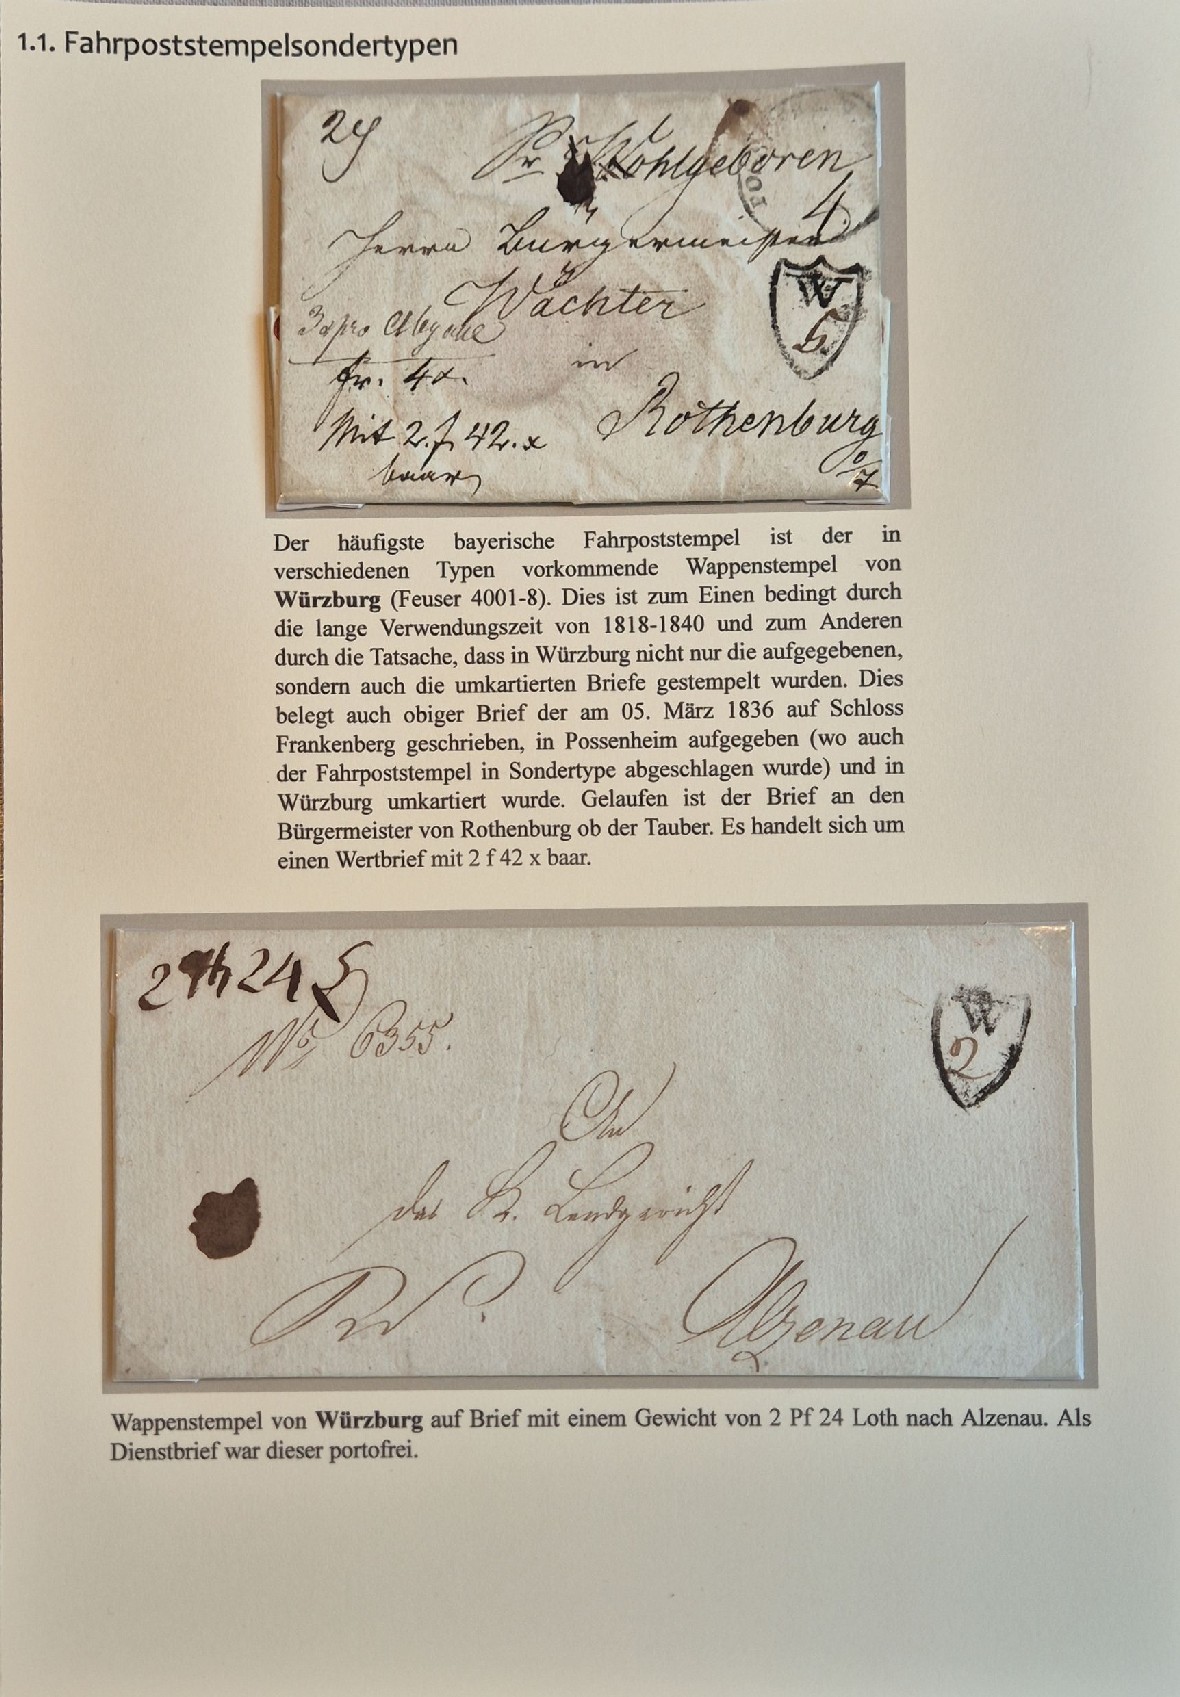 1.1. Fahrpoststempelsondertypen
Sr. Wohlgeboren
4
Herrn Bürgermeister
Wächter
W
5.
in
fr. 4x.
Mit 2.f 42.x
baar
Rothenburg
o/T
Der häufigste bayerische Fahrpoststempel ist der in
verschiedenen Typen vorkommende Wappenstempel von
Würzburg (Feuser 4001-8). Dies ist zum Einen bedingt durch
die lange Verwendungszeit von 1818-1840 und zum Anderen
durch die Tatsache, dass in Würzburg nicht nur die aufgegebenen,
sondern auch die umkartierten Briefe gestempelt wurden. Dies
belegt auch obiger Brief der am 05. März 1836 auf Schloss
Frankenberg geschrieben, in Possenheim aufgegeben (wo auch
der Fahrpoststempel in Sondertype abgeschlagen wurde) und in
Würzburg umkartiert wurde. Gelaufen ist der Brief an den
Bürgermeister von Rothenburg ob der Tauber. Es handelt sich um
einen Wertbrief mit 2 f 42 x baar.
2 24
No 6355.
W
2
An
das K. Landgericht
Alzenau
Wappenstempel von Würzburg auf Brief mit einem Gewicht von 2 Pf 24 Loth nach Alzenau. Als
Dienstbrief war dieser portofrei.